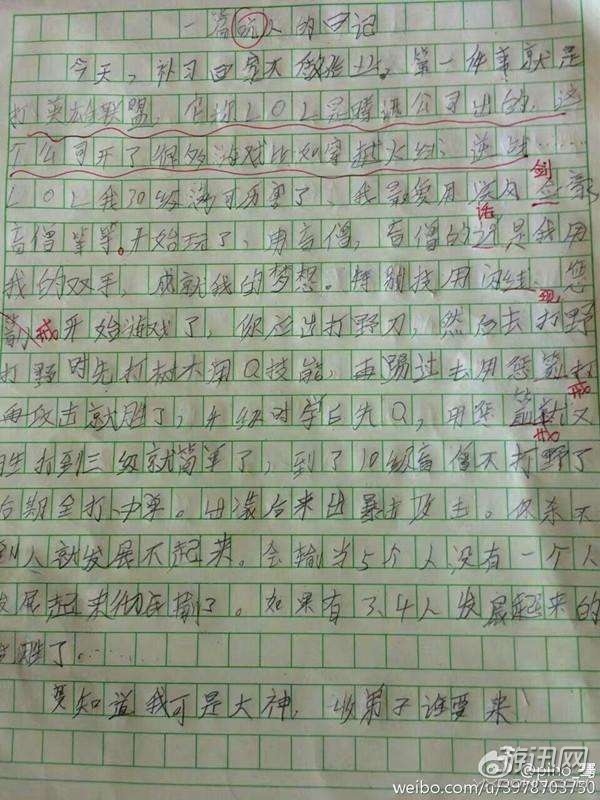 一篇玩人的日记
今天,补习回家,第一件事就是
打英雄联盟,官称LOL是腾讯公司出的,这
个公司开了很多游戏比如穿越火线,逆战……
LOL我30级满可厉害了,我最爱用 剑
盲僧等等。开始玩了,用盲僧,盲僧的话是我用
我的双手,成就我的梦想。特别技用 您
戒开始游戏了,你应出打野刀,然后去打野
打野时先打树木用Q技能,再踢过去用 打
再攻击就胜了,升级时学点先Q,用 戒又
能打到三级就简单了,到了10级盲僧不打野了
后期全打中单。出装后来出暴击攻击。你杀不
到人就发展不起来。会输当5个人没有一个人
发展起来彻底输了。如果有了4人发展起来的
胜了……
要知道我可是大神,收弟子谁要来!
游讯网
@pino_骞
weibo.com/u/3978703750